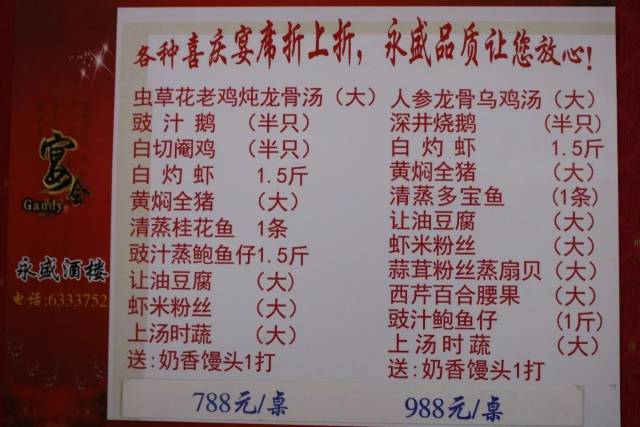 各种喜庆宴席折上折，永盛品质让您放心！
虫草花老鸡炖龙骨汤（大）
豉汁鹅（半只）
白切阉鸡（半只）
白灼虾 1.5斤
黄焖全猪（大）
清蒸桂花鱼 1条
豉汁蒸鲍鱼仔1.5斤
让油豆腐（大）
虾米粉丝（大）
上汤时蔬（大）
送:奶香馒头1打
788元/桌
人参龙骨乌鸡汤（大）
深井烧鹅（半只）
白灼虾 1.5斤
黄焖全猪（大）
清蒸多宝鱼（1条）
让油豆腐（大）
虾米粉丝（大）
蒜茸粉丝蒸扇贝（大）
西芹百合腰果（大）
豉汁鲍鱼仔（1斤）
上汤时蔬（大）
送:奶香馒头1打
988元/桌
宴会
Gaudy
永盛酒楼
电话:6333752